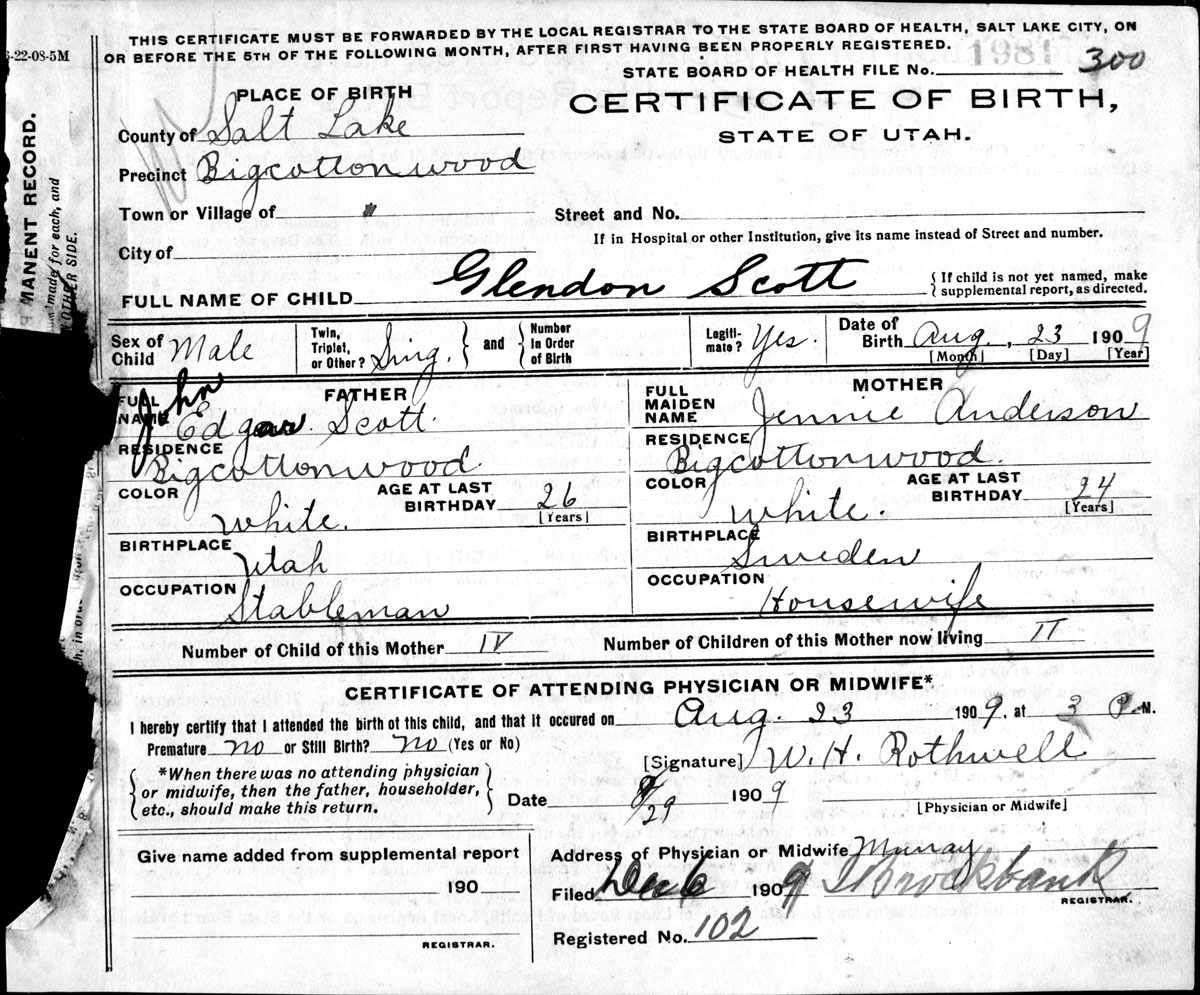 THIS CERTIFICATE MUST BE FORWARDED BY THE LOCAL REGISTRAR TO THE STATE BOARD OF HEALTH, SALT LAKE CITY, ON
-22-08-5M
OR BEFORE THE 5TH OF THE FOLLOWING MONTH, AFTER FIRST HAVING BEEN PROPERLY REGISTERED.
STATE BOARD OF HEALTH FILE No. 1981 300
PLACE OF BIRTH
CERTIFICATE OF BIRTH,
County of Salt Lake
STATE OF UTAH.
Precinct Bigcottonwood
MANENT RECORD.
made for each, and
OTHER SIDE.
Town or Village of " Street and No.
If in Hospital or other Institution, give its name instead of Street and number.
City of
FULL NAME OF CHILD Glendon Scott { If child is not yet named, make
supplemental report, as directed.
Sex of Child Male Twin, Triplet, or Other? Sing. } and { Number in Order of Birth Legiti-mate? Yes. Date of Birth Aug. 23 1909
[Month] [Day] [Year]
FATHER MOTHER
FULL NAME John Edgar Scott. FULL MAIDEN NAME Jennie Anderson
RESIDENCE Bigcottonwood RESIDENCE Bigcottonwood.
COLOR White. AGE AT LAST BIRTHDAY 26 [Years] COLOR White. AGE AT LAST BIRTHDAY 24 [Years]
BIRTHPLACE Utah BIRTHPLACE Sweden
OCCUPATION Stableman OCCUPATION Housewife
Number of Child of this Mother IV Number of Children of this Mother now living II
CERTIFICATE OF ATTENDING PHYSICIAN OR MIDWIFE*
I hereby certify that I attended the birth of this child, and that it occured on Aug. 23 1909, at 3 P.M.
Premature no or Still Birth? no (Yes or No)
[Signature] W. H. Rothwell
{ *When there was no attending physician
or midwife, then the father, householder,
etc., should make this return. }
Date 8/29 1909
[Physician or Midwife]
Give name added from supplemental report
190
REGISTRAR.
Address of Physician or Midwife Murray
Filed Dec 6 1909 Brockbank
REGISTRAR.
Registered No. 102